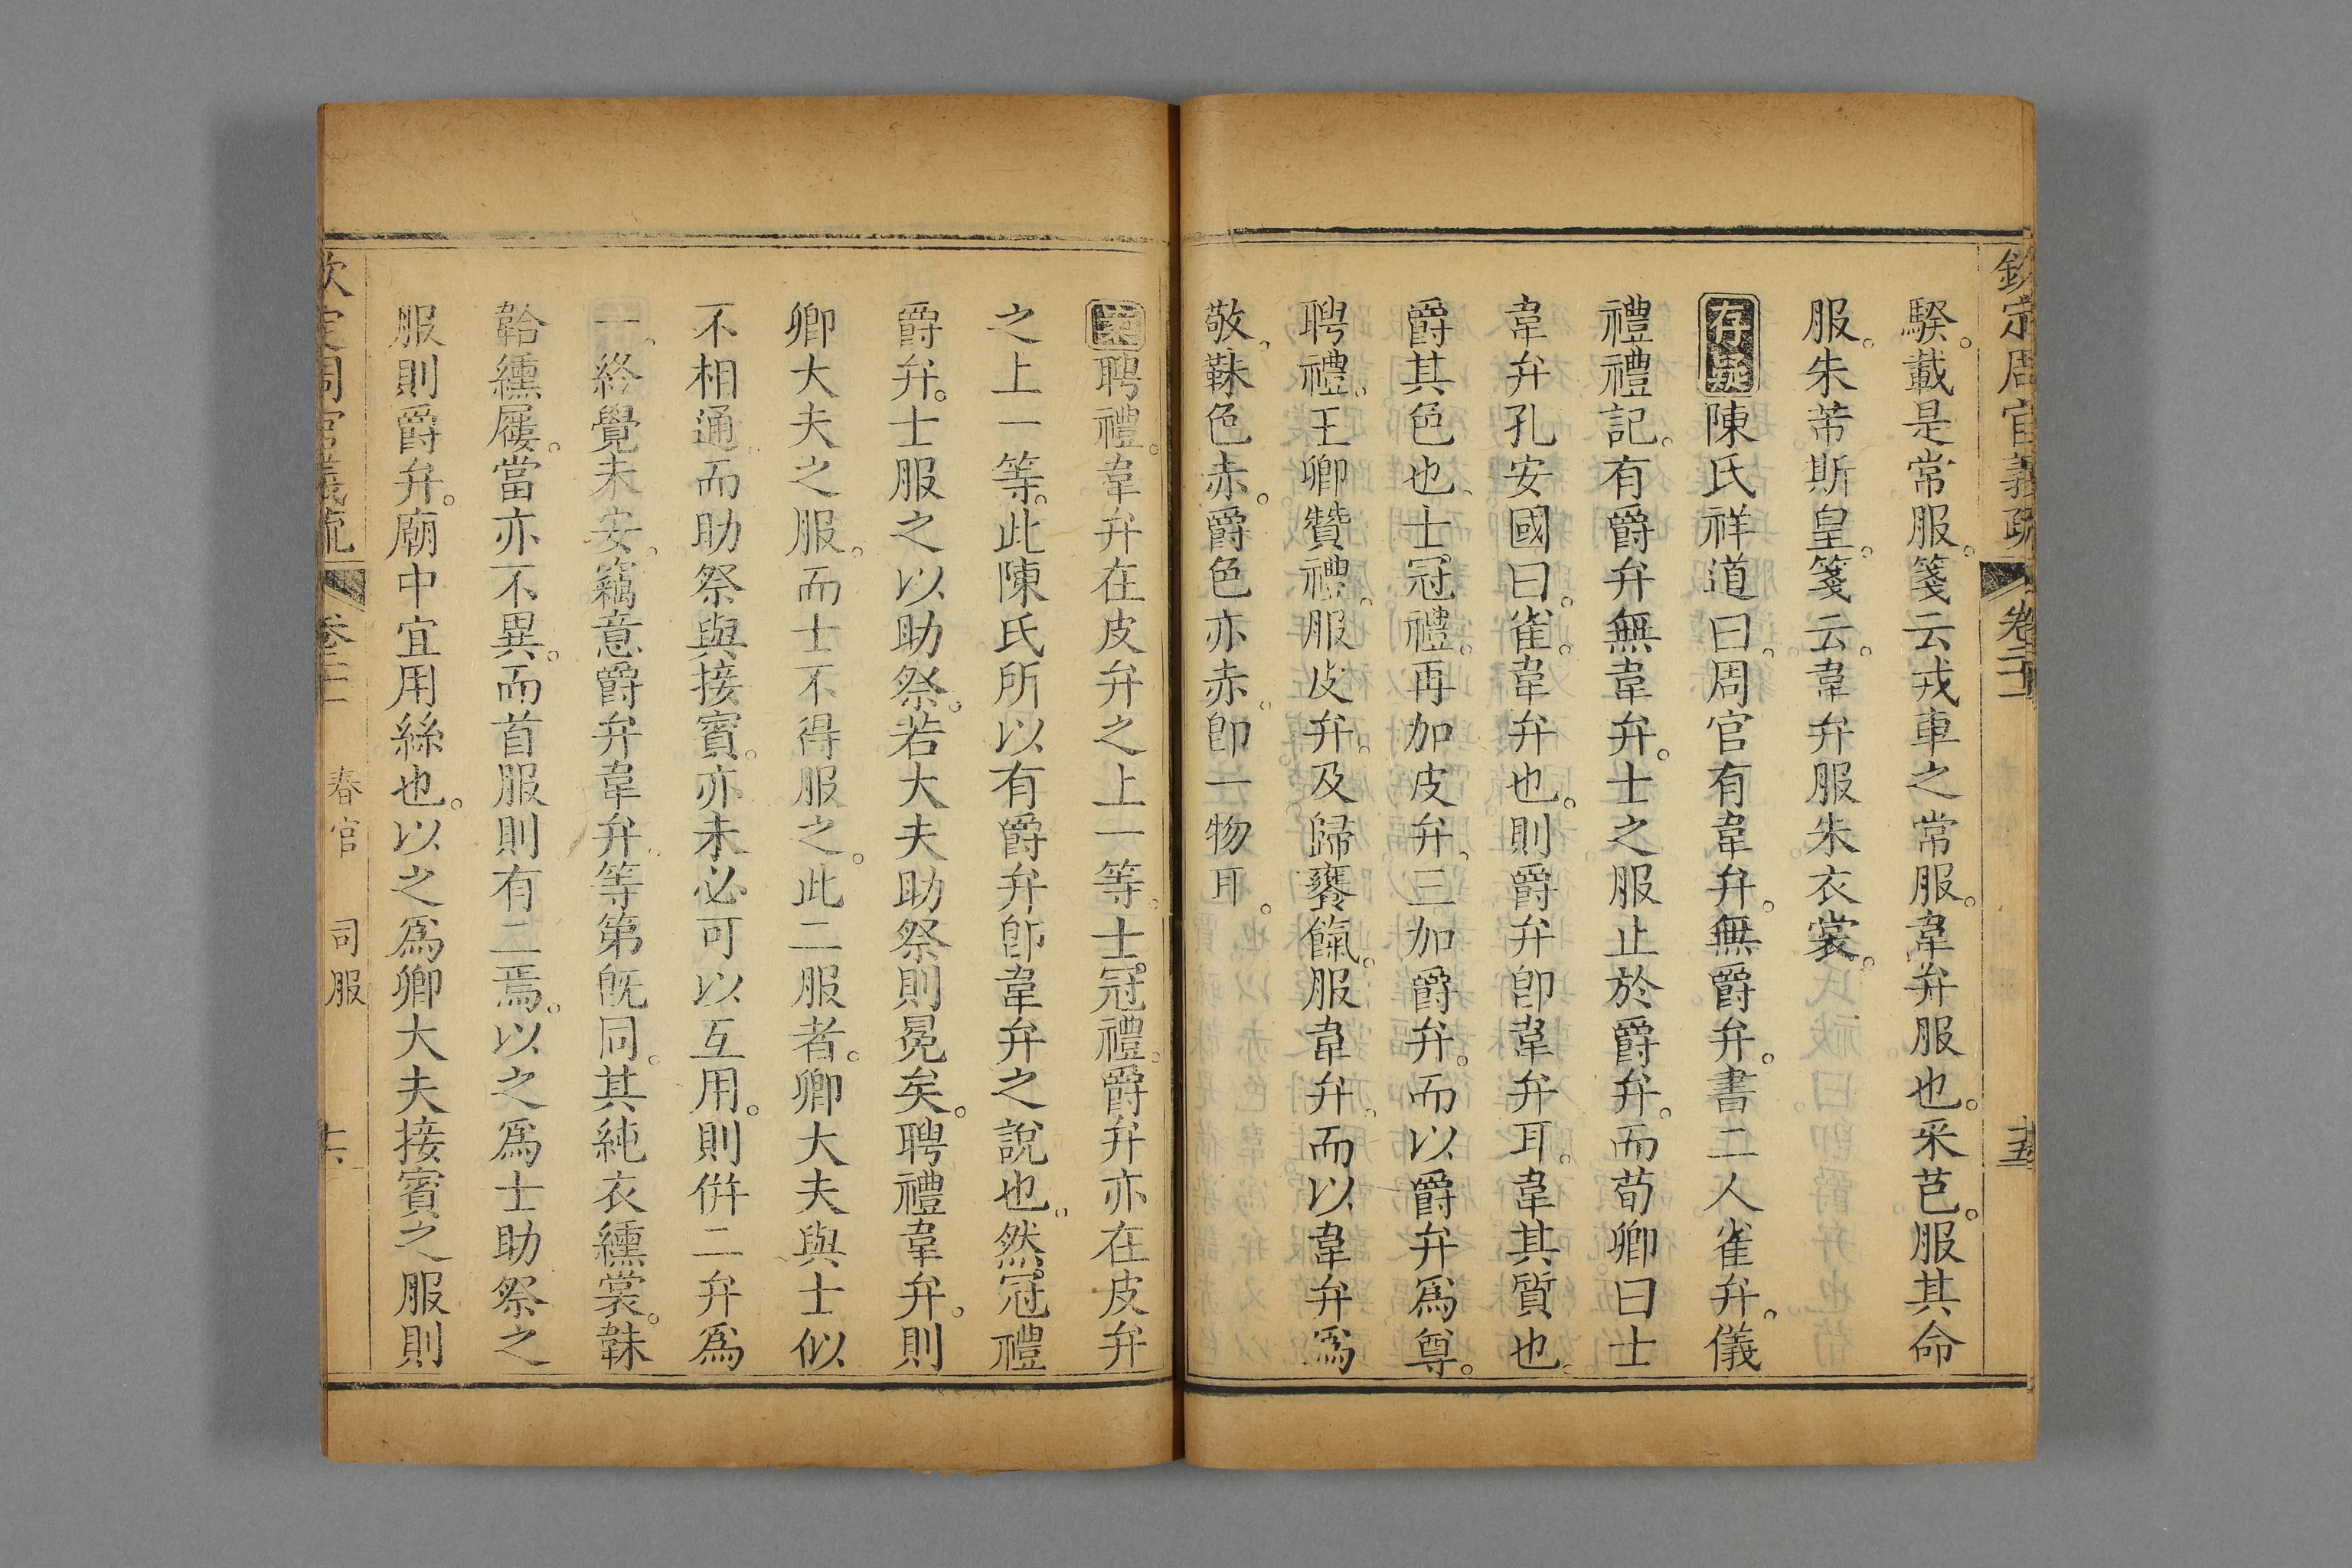 欽定周官義疏 卷二十一 十五
騤。載是常服。箋云戎車之常服。韋弁服也。采芑。服其命
服。朱芾斯皇。箋云。韋弁服朱衣裳。
存疑陳氏祥道曰。周官有韋弁。無爵弁。書二人雀弁。儀
禮禮記。有爵弁無韋弁。士之服止於爵弁。而荀卿曰士
韋弁孔安國曰。雀。韋弁也。則爵弁卽韋弁耳。韋其質也。
爵其色也。士冠禮。再加皮弁。三加爵弁。而以爵弁爲尊。
聘禮。王卿贊禮。服皮弁。及歸饔餼。服韋弁。而以韋弁爲
敬。韎色赤。爵色亦赤。卽一物耳。
聘禮。韋弁在皮弁之上一等。士冠禮。爵弁亦在皮弁
之上一等。此陳氏所以有爵弁卽韋弁之說也。然冠禮
爵弁。士服之以助祭。若大夫助祭則冕矣。聘禮韋弁。則
卿大夫之服。而士不得服之。此二服者。卿大夫與士似
不相通。而助祭與接賓。亦未必可以互用。則併二弁爲
一。終覺未安。竊意爵弁韋弁等第旣同。其純衣纁裳。韎
韐纁屨。當亦不異。而首服則有二焉。以之爲士助祭之
服則爵弁。廟中宜用絲也。以之爲卿大夫接賓之服則
欽定周官義疏 卷二十一 春官 司服 十六